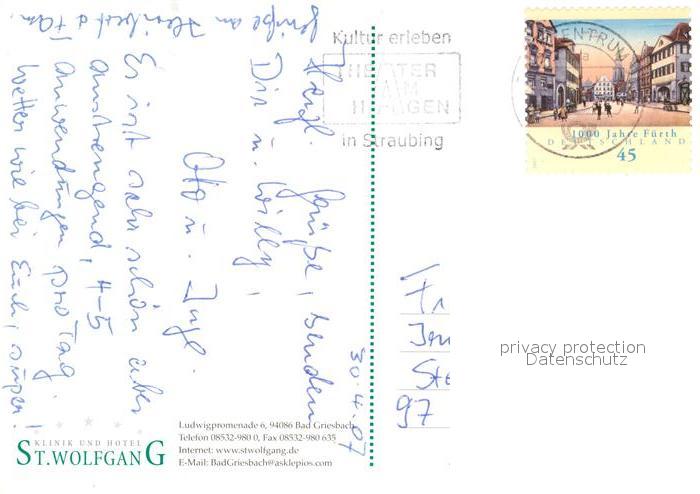 30.4.07
Herzl. Grüße, senden
Dir u. Willy,
Otto u. Ingl.
Es ist sehr schön aber
anstrengend, 4-5
Anwendungen pro Tag.
Wetter wie bei Euch, super!
Grüße an Heribert u. Fam.
Kultur erleben
THEATER
AM
HAGEN
in Straubing
ZENTRUM
1000 Jahre Fürth
DEUTSCHLAND
45
Fr
Ste
97
privacy protection
Datenschutz
KLINIK UND HOTEL
ST.WOLFGANG
Ludwigpromenade 6, 94086 Bad Griesbach
Telefon 08532-980 0, Fax 08532-980 635
Internet: www.stwolfgang.de
E-Mail: BadGriesbach@asklepios.com